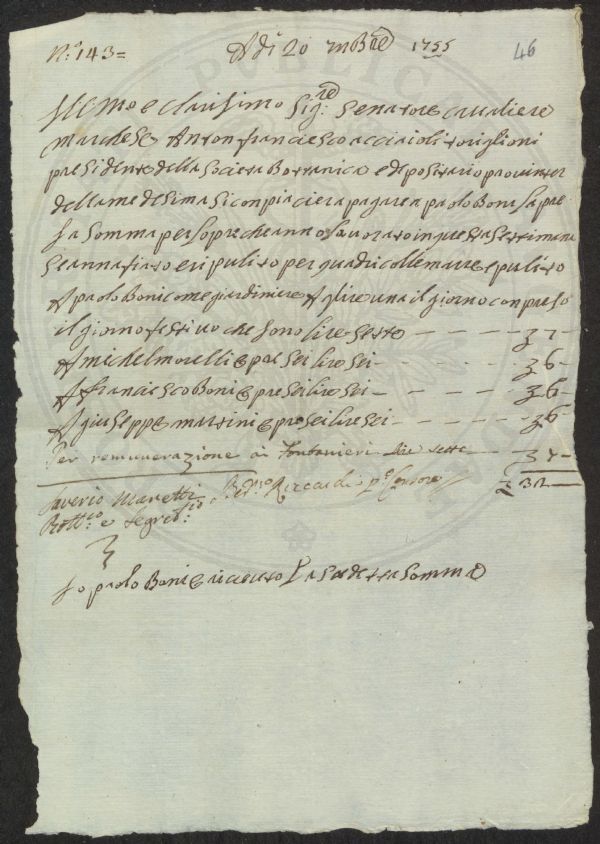 N.º 143=
Adi 20 9mBre 1755
46
Ill mo e Clarissimo Sig.re Senatore Cavaliere
Marchese Anton franciesco acciaioli toriglioni
presidente della Societa Bottanica e depositario provinter
della medesima Si conpiaciera pagare a paolo Boni la pre
sa Somma per lopre che anno lavorato in questa Settimana
Se annafiato e ripulito per quadri colle marre e pulito
A paolo Boni come giardiniere A lire una il giorno conpreso
il giorno festivo che sono lire Sette — — — 7 —
A michel morelli e pre Sei lire Sei — — — 6 —
A franciesco Boni e pre Sei lire Sei — — — 6 —
A giuseppe martini e pre Sei lire Sei — — — 6 —
Per remunerazione ai Fontanieri lire sette — 7 —
32 —
Saverio Manetti
Rott.io e Segret.io
Riccardi p.o Censore
Io paolo Boni e ricieuto La Sudetta Somma